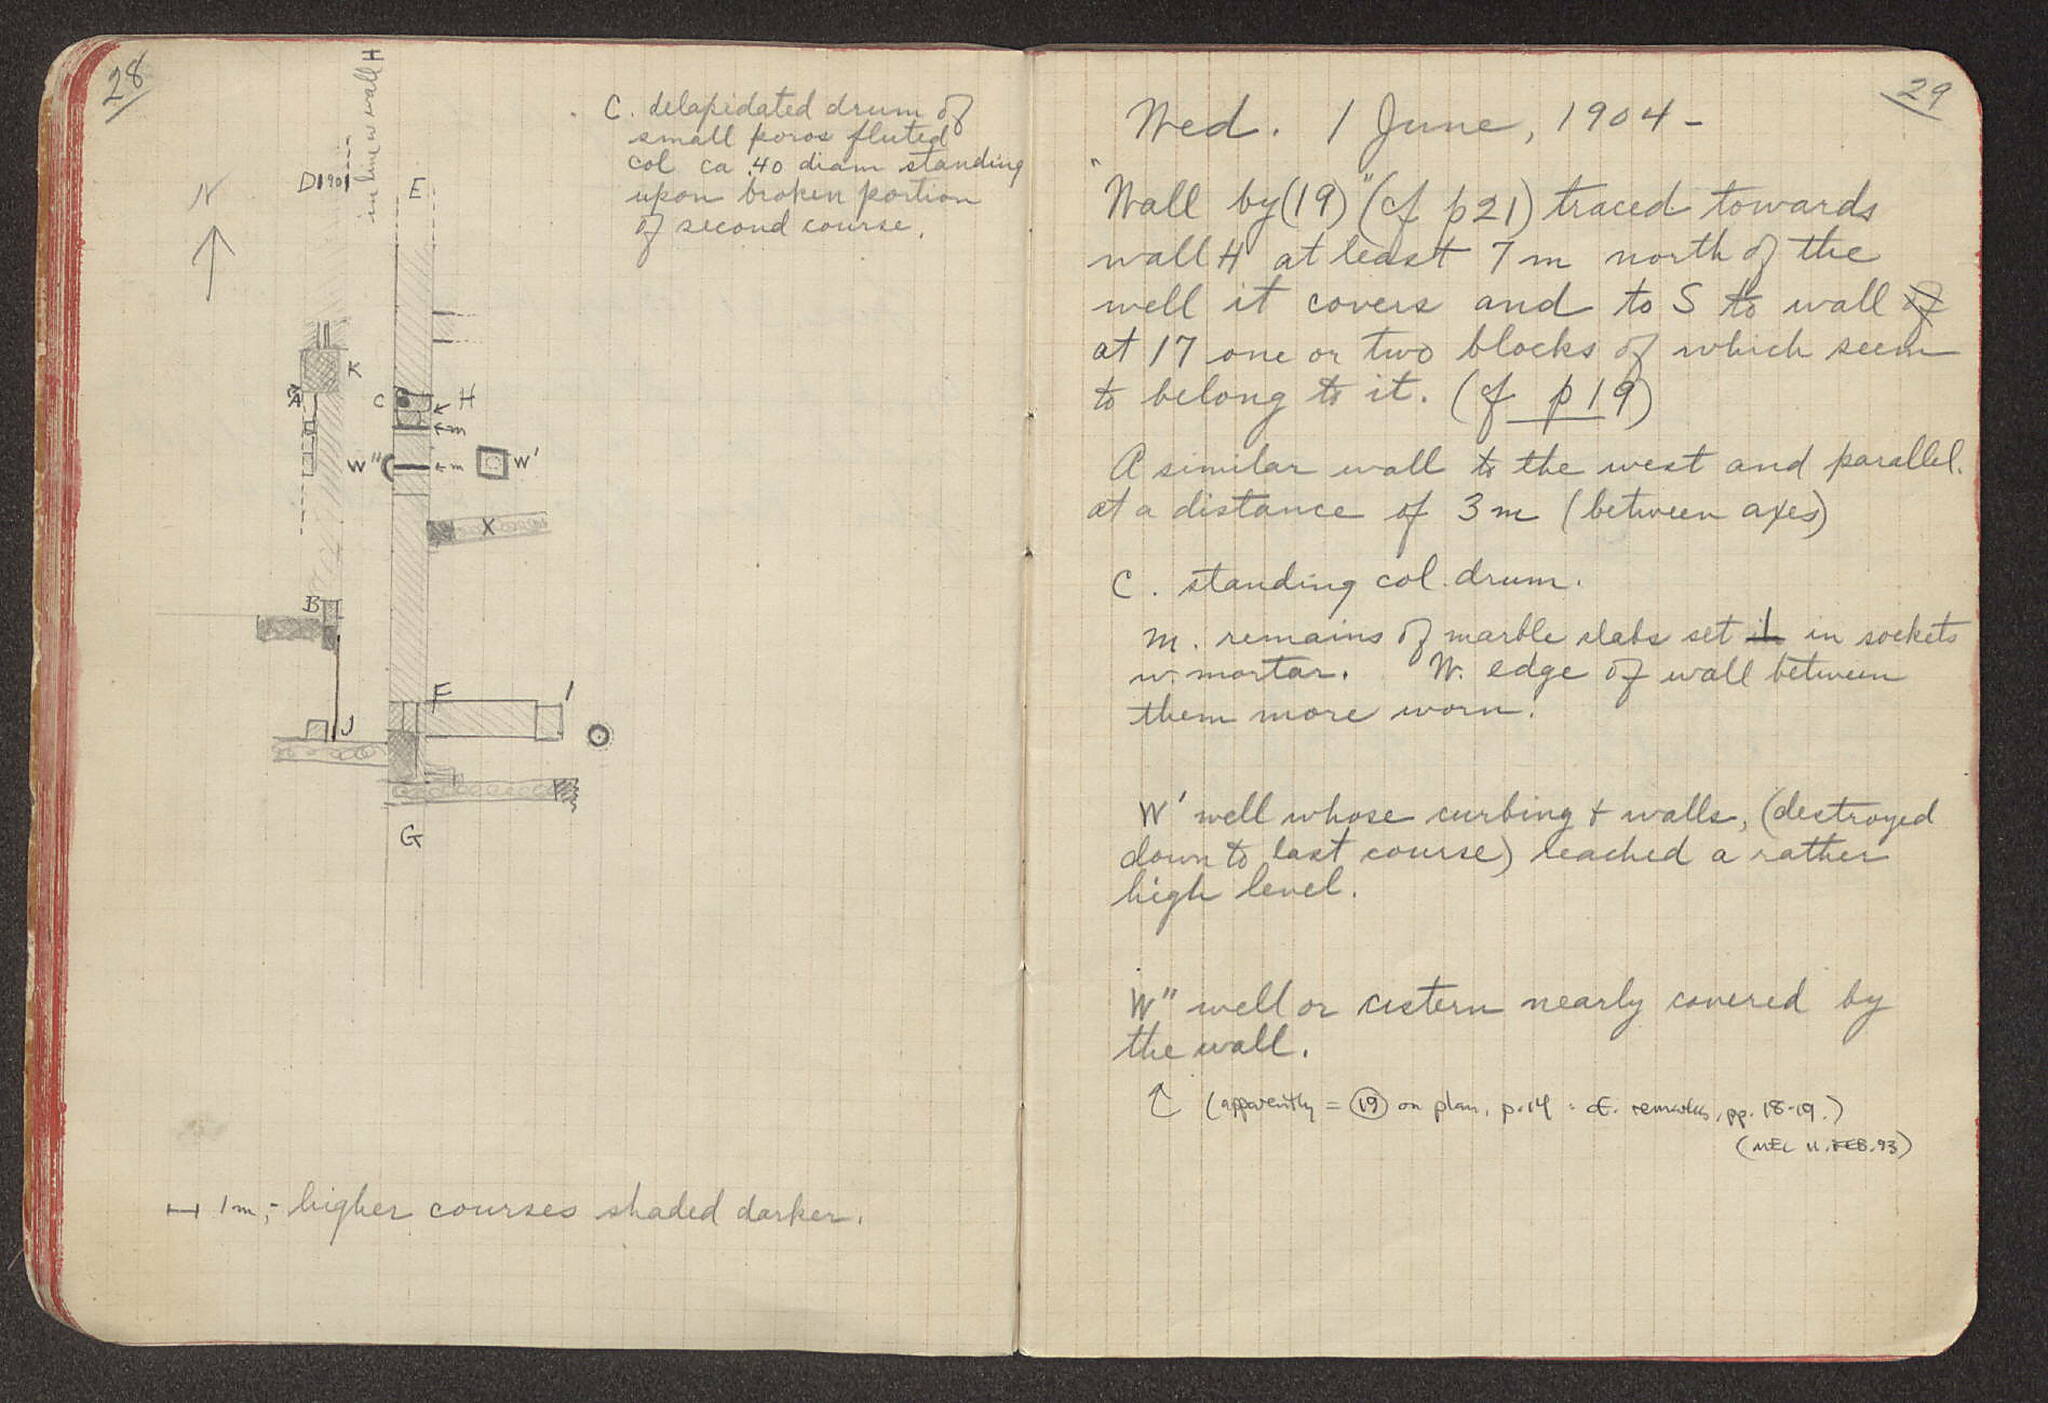 28
in line w wall H
D 1901
E
N
C. delapidated drum of
small poros fluted
col ca .40 diam standing
upon broken portion
of second course.
K
A
C
H
m
W"
m
W'
X
B
F
I
J
G
1m,- higher courses shaded darker.
29
Wed. 1 June, 1904 -
"Wall by (19)" (cf p21) traced towards
wall H at least 7 m north of the
well it covers and to S to wall of
at 17 one or two blocks of which seem
to belong to it. (cf p 19)
A similar wall to the west and parallel.
at a distance of 3 m (between axes)
C. standing col. drum.
m. remains of marble slabs set ⊥ in sockets
w. mortar. W. edge of wall between
them more worn.
W' well whose curbing + walls, (destroyed
down to last course) reached a rather
high level.
W" well or cistern nearly covered by
the wall.
(apparently = (19) on plan, p. 14 : cf. remarks, pp. 18-19.)
(MEL 11. FEB. 93)